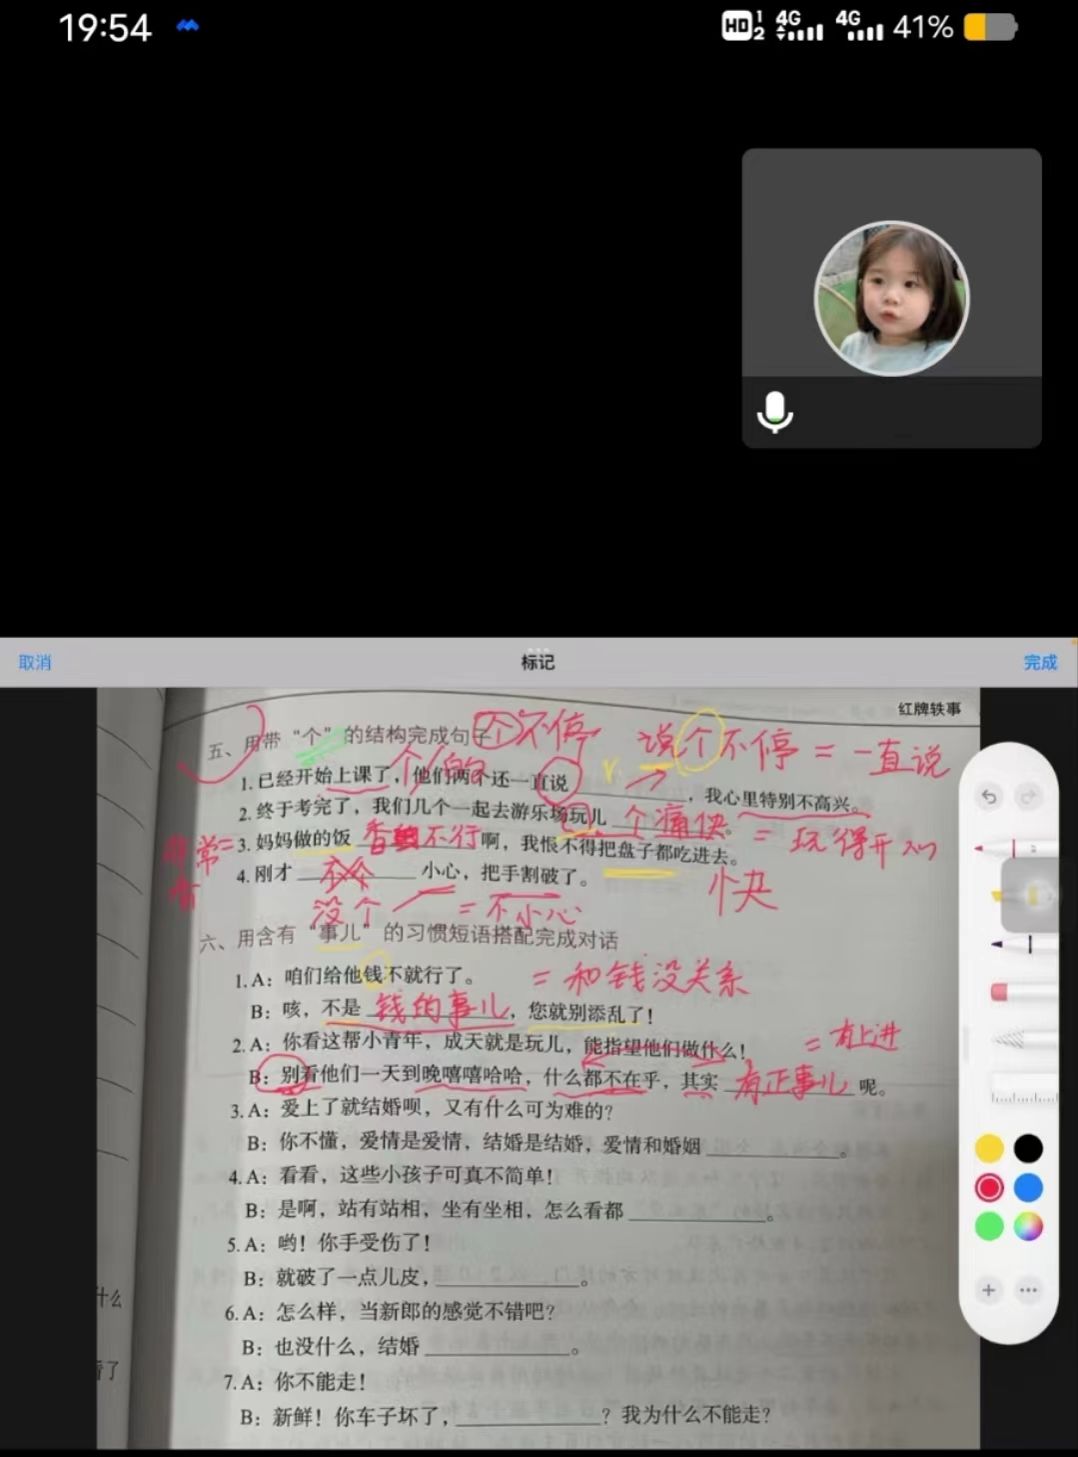 19:54
HD 1 2 4G 4G 41%
取消 标记 完成
红牌轶事
个不停 说个不停 = 一直说
五、用带“个”的结构完成句子
1. 已经开始上课了，他们两个还一直说____________，我心里特别不高兴。
2. 终于考完了，我们几个一起去游乐场玩儿 个痛快。 = 玩得开心
非常 = 3. 妈妈做的饭 香 不行 啊，我恨不得把盘子都吃进去。
4. 刚才____________小心，把手割破了。
快
没个 = 不小心
六、用含有“事儿”的习惯短语搭配完成对话
1. A：咱们给他钱不就行了。 = 和钱没关系
B：咳，不是 钱的事儿，您就别添乱了！
2. A：你看这帮小青年，成天就是玩儿，能指望他们做什么！ = 有上进
B：别看他们一天到晚嘻嘻哈哈，什么都不在乎，其实 有正事儿 呢。
3. A：爱上了就结婚呗，又有什么可为难的？
B：你不懂，爱情是爱情，结婚是结婚，爱情和婚姻____________。
4. A：看看，这些小孩子可真不简单！
B：是啊，站有站相，坐有坐相，怎么看都____________。
5. A：哟！你手受伤了！
B：就破了一点儿皮，____________。
什么
6. A：怎么样，当新郎的感觉不错吧？
B：也没什么，结婚____________。
了
7. A：你不能走！
B：新鲜！你车子坏了，____________？我为什么不能走？